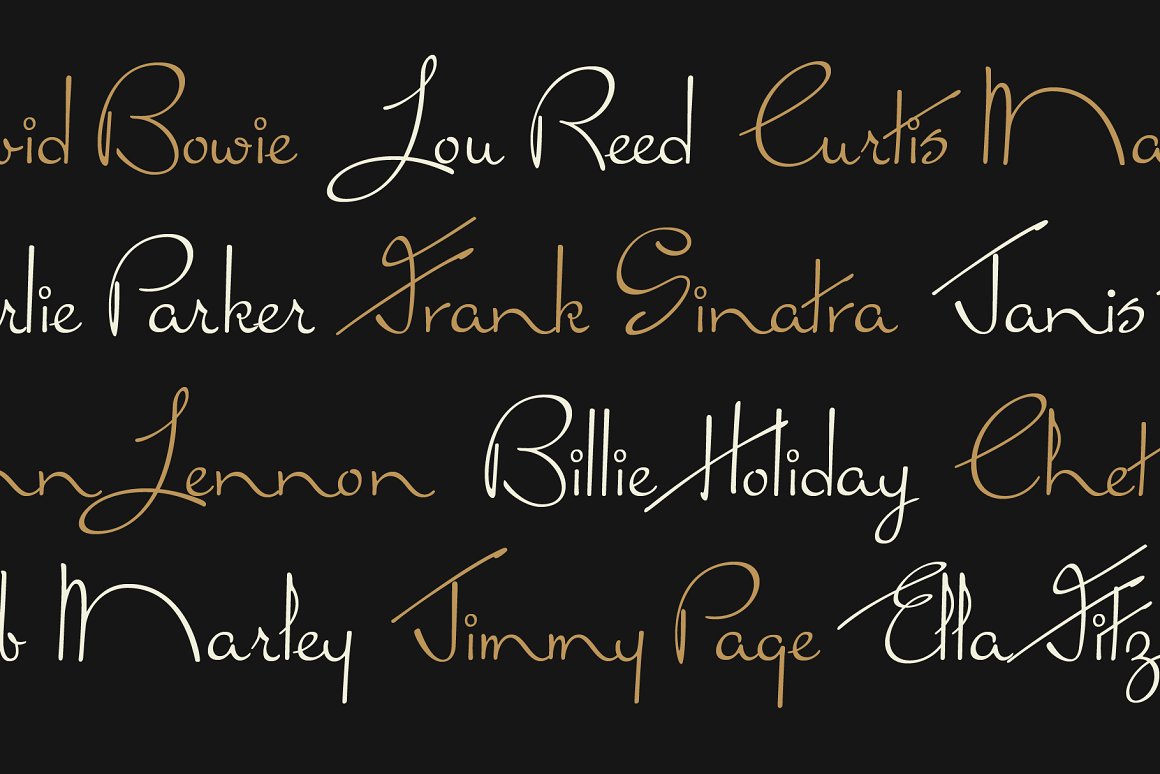 vid Bowie Lou Reed Curtis Ma
rlie Parker Frank Sinatra Janis
nn Lennon Billie Holiday Chet
b Marley Jimmy Page Ella Fitz